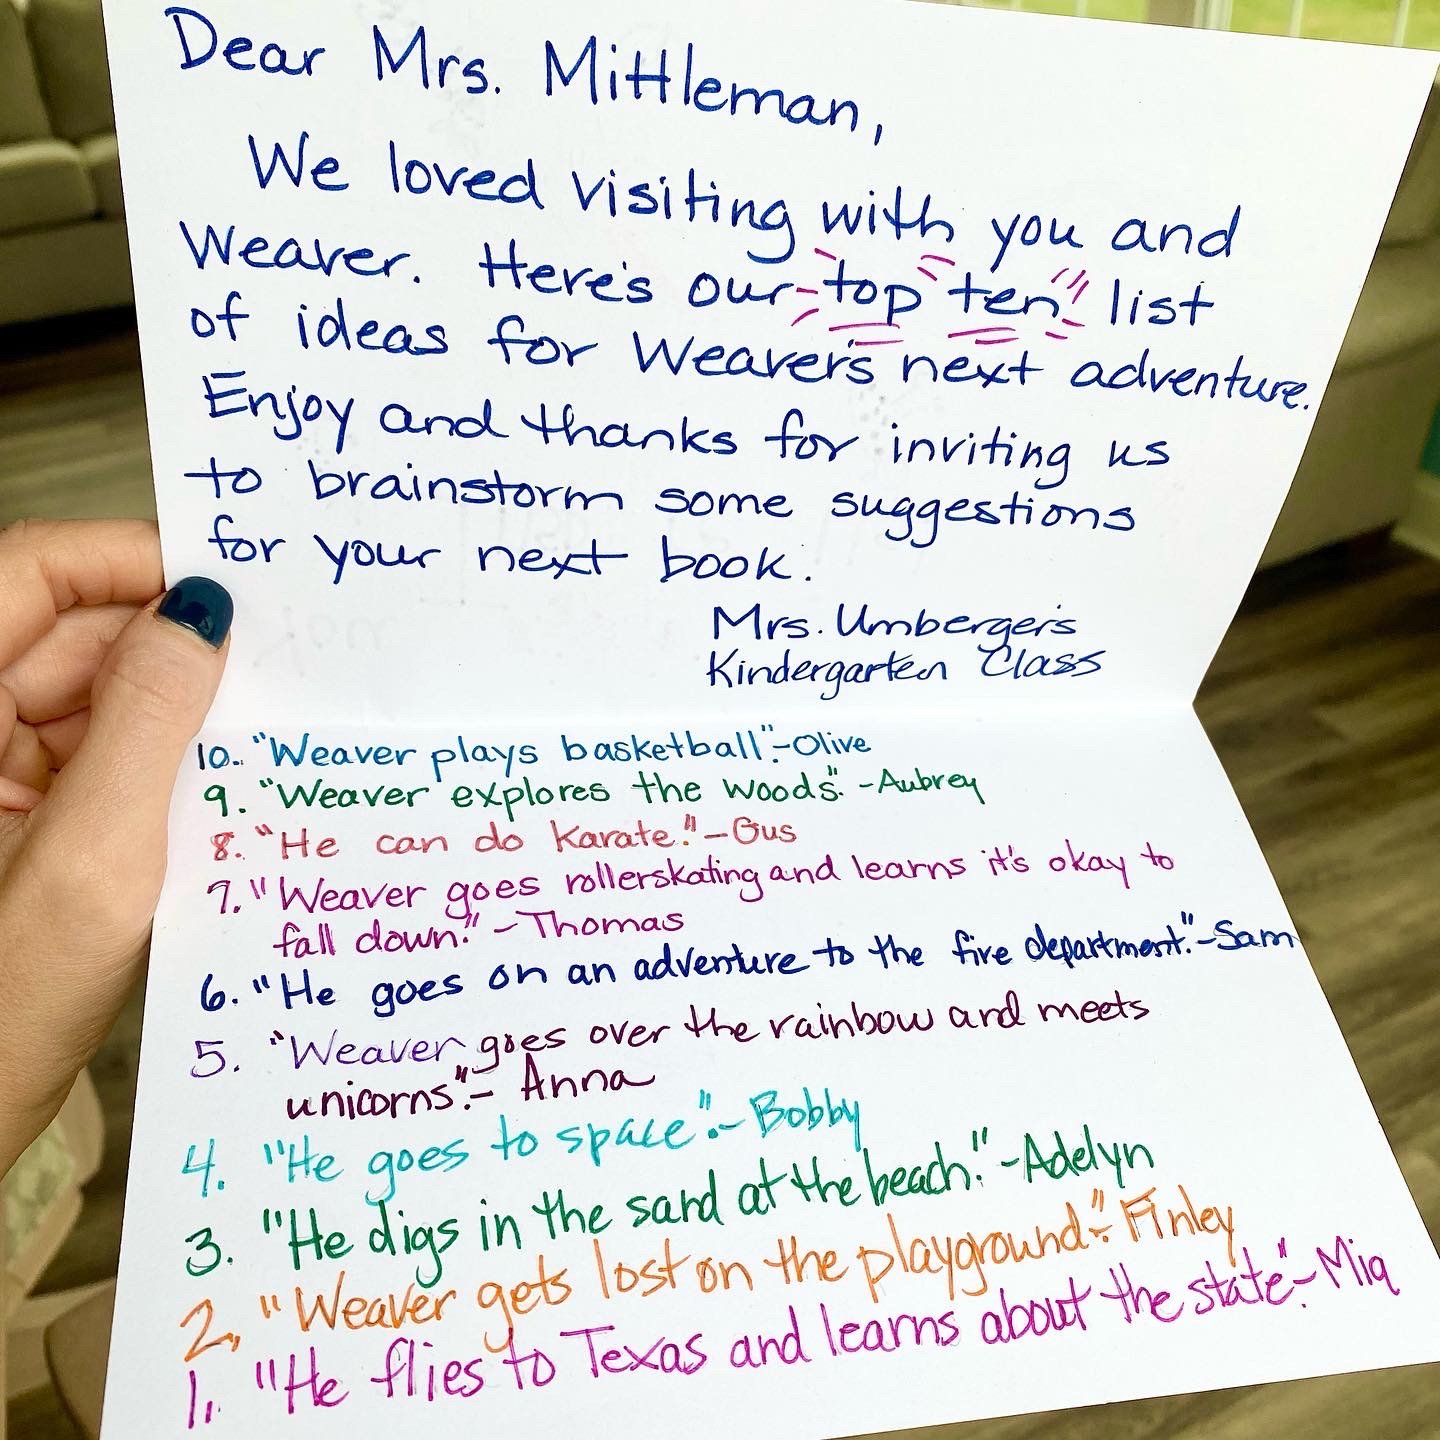 Dear Mrs. Mittleman,
We loved visiting with you and
Weaver. Here's our top ten list
of ideas for Weaver's next adventure.
Enjoy and thanks for inviting us
to brainstorm some suggestions
for your next book.
Mrs. Umberger's
Kindergarten Class
10. "Weaver plays basketball".-Olive
9. "Weaver explores the woods." -Aubrey
8. "He can do Karate." -Gus
7. "Weaver goes rollerskating and learns it's okay to
fall down." -Thomas
6. "He goes on an adventure to the fire department." -Sam
5. "Weaver goes over the rainbow and meets
unicorns".- Anna
4. "He goes to space".-Bobby
3. "He digs in the sand at the beach." -Adelyn
2. "Weaver gets lost on the playground".-Finley
1. "He flies to Texas and learns about the state".-Mia